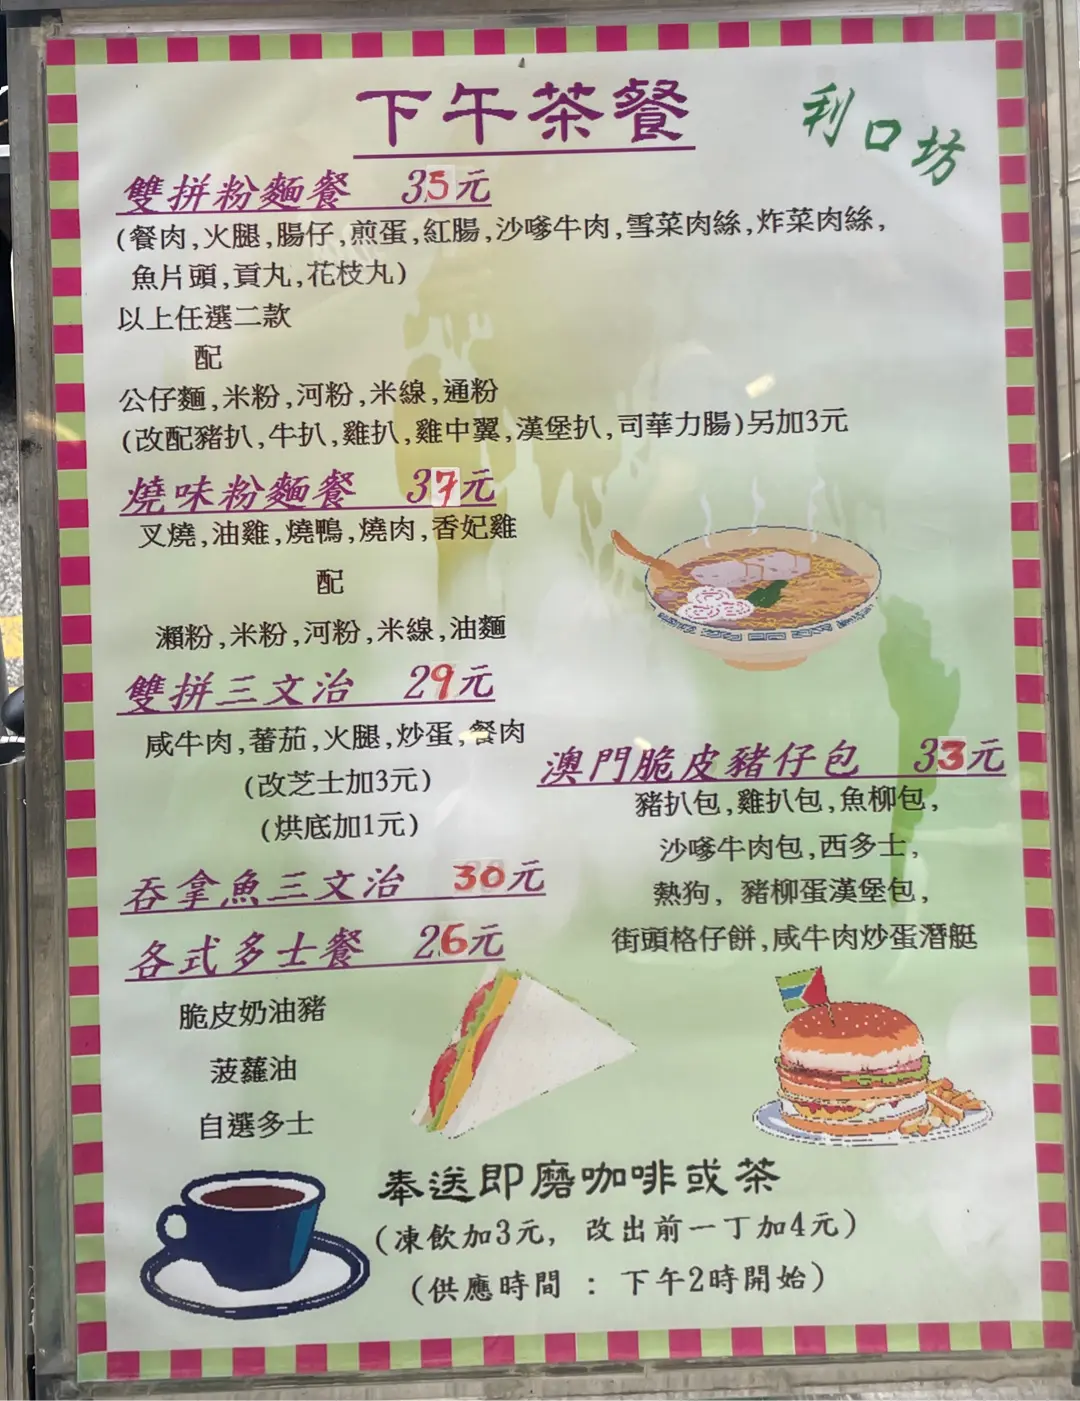 下午茶餐
利口坊
雙拼粉麵餐 35元
(餐肉,火腿,腸仔,煎蛋,紅腸,沙嗲牛肉,雪菜肉絲,炸菜肉絲,
魚片頭,貢丸,花枝丸)
以上任選二款
配
公仔麵,米粉,河粉,米線,通粉
(改配豬扒,牛扒,雞扒,雞中翼,漢堡扒,司華力腸)另加3元
燒味粉麵餐 37元
叉燒,油雞,燒鴨,燒肉,香妃雞
配
瀨粉,米粉,河粉,米線,油麵
雙拼三文治 29元
咸牛肉,蕃茄,火腿,炒蛋,餐肉
(改芝士加3元)
(烘底加1元)
吞拿魚三文治 30元
各式多士餐 26元
脆皮奶油豬
菠蘿油
自選多士
澳門脆皮豬仔包 33元
豬扒包,雞扒包,魚柳包,
沙嗲牛肉包,西多士,
熱狗, 豬柳蛋漢堡包,
街頭格仔餅,咸牛肉炒蛋潛艇
奉送即磨咖啡或茶
(凍飲加3元, 改出前一丁加4元)
(供應時間 : 下午2時開始)